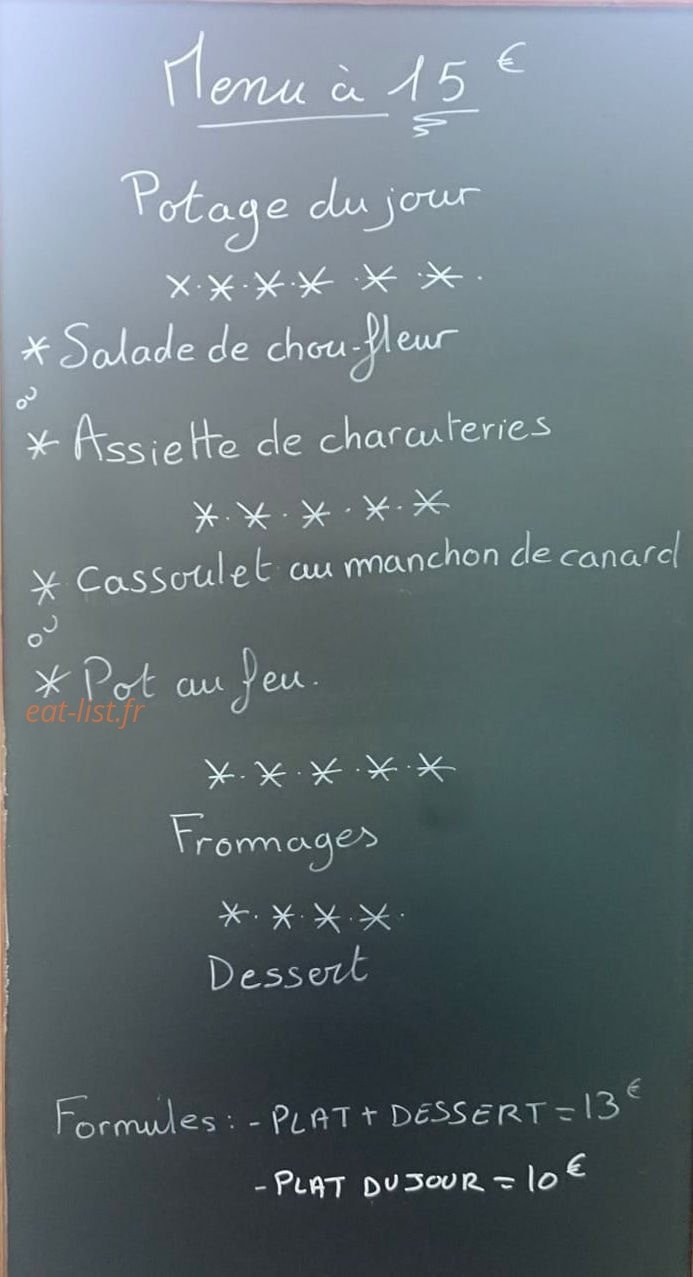 Menu à 15 €
Potage du jour
x.*.*.* .* .* .
* Salade de chou-fleur
ou
* Assiette de charcuteries
*.*.*.*.*
* Cassoulet au manchon de canard
ou
* Pot au feu.
eat-list.fr
*.*.*.*.*
Fromages
*.*.*.*.
Dessert
Formules : - PLAT + DESSERT = 13 €
- PLAT DU JOUR = 10 €